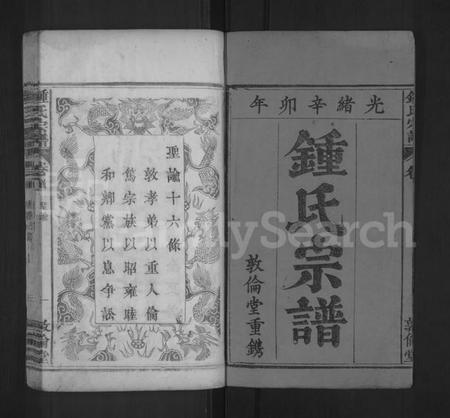 光緒辛卯年
鍾氏宗譜
敦倫堂重鐫
鍾氏宗譜
敦倫堂
聖諭十六條
敦孝弟以重人倫
篤宗族以昭雍睦
和鄉黨以息爭訟
鍾氏宗譜
敦倫堂
FamilySearch